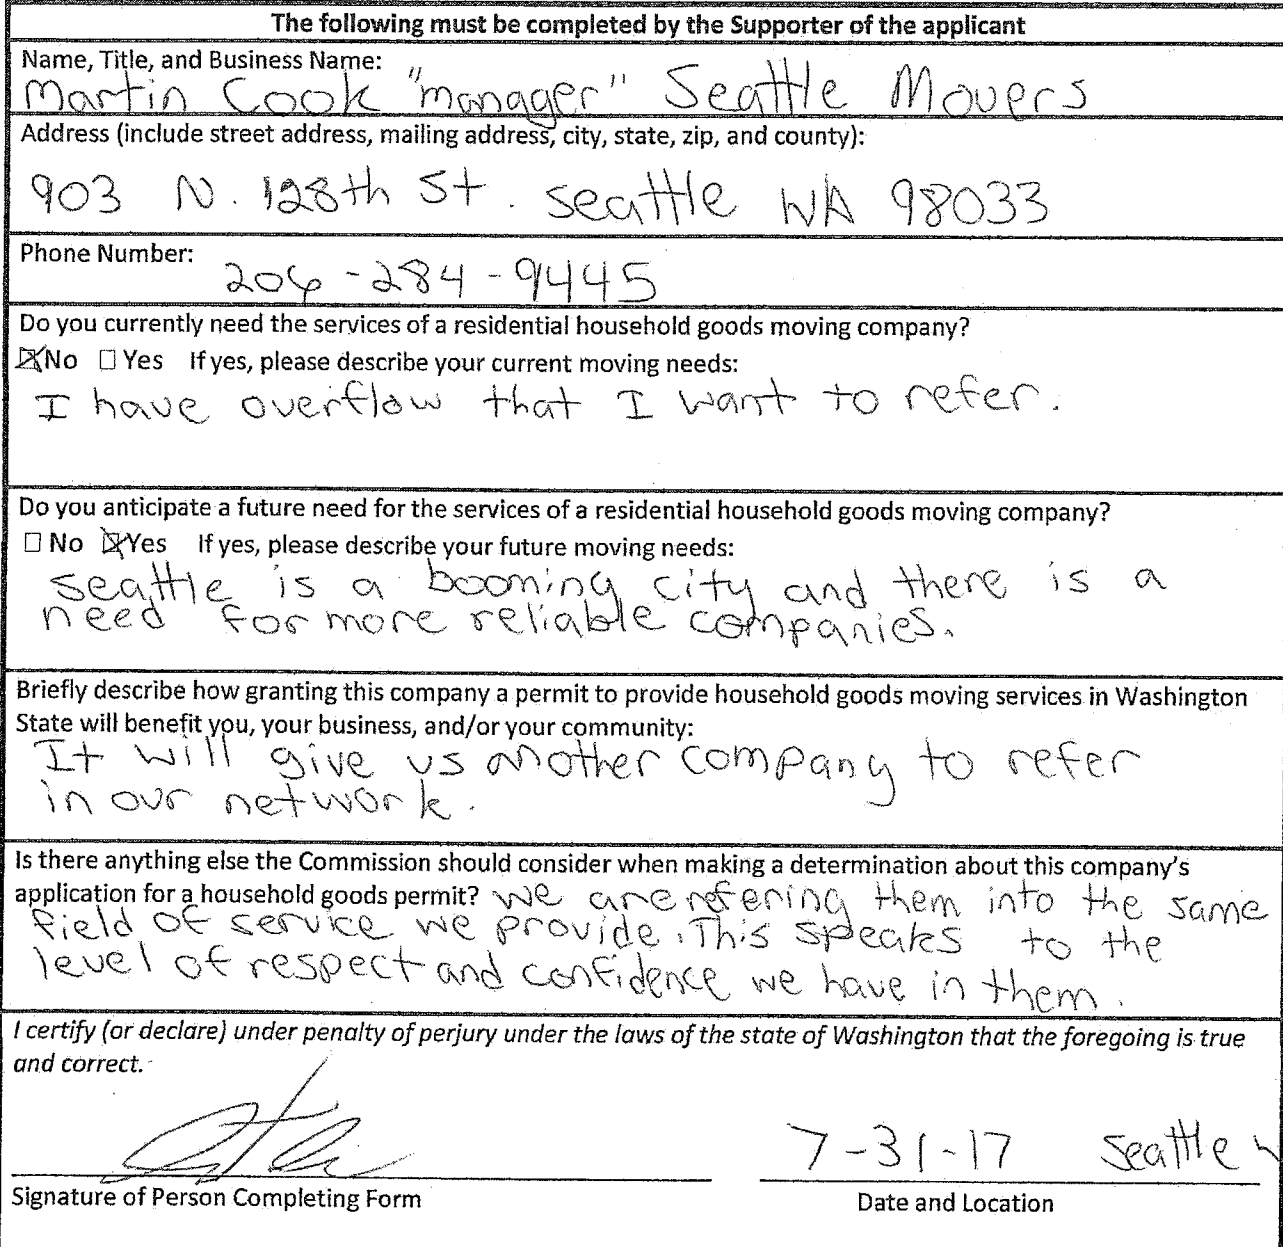 The following must be completed by the Supporter of the applicant
Name, Title, and Business Name:
Martin Cook "manager" Seattle Movers
Address (include street address, mailing address, city, state, zip, and county):
903 N. 128th St. Seattle WA 98033
Phone Number:
206-284-9445
Do you currently need the services of a residential household goods moving company?
☒No ☐Yes If yes, please describe your current moving needs:
I have overflow that I want to refer.
Do you anticipate a future need for the services of a residential household goods moving company?
☐ No ☒Yes If yes, please describe your future moving needs:
Seattle is a booming city and there is a
need for more reliable companies.
Briefly describe how granting this company a permit to provide household goods moving services in Washington
State will benefit you, your business, and/or your community:
It will give us another company to refer
in our network.
Is there anything else the Commission should consider when making a determination about this company's
application for a household goods permit? We are refering them into the same
field of service we provide. This speaks to the
level of respect and confidence we have in them.
I certify (or declare) under penalty of perjury under the laws of the state of Washington that the foregoing is true
and correct.
7-31-17 Seattle
Signature of Person Completing Form Date and Location